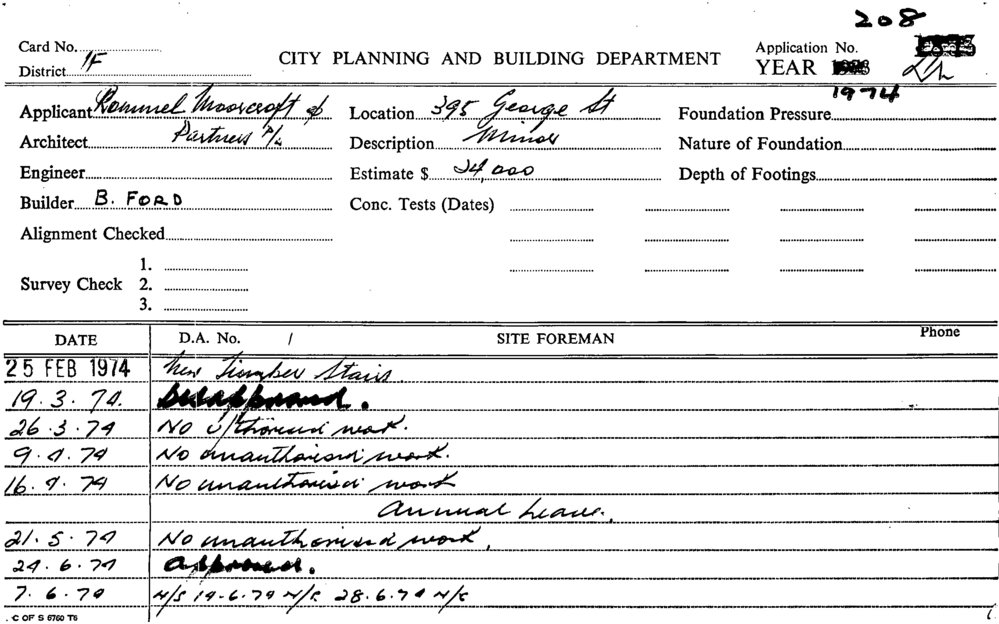 208
Card No. Application No.
District 1F CITY PLANNING AND BUILDING DEPARTMENT YEAR
1974
Applicant Rommel Moorcroft & Location 395 George St Foundation Pressure
Architect Partners P/L Description Minor Nature of Foundation
Engineer Estimate $ 24,000 Depth of Footings
Builder B. FORD Conc. Tests (Dates)
Alignment Checked
1.
Survey Check 2.
3.
DATE D.A. No. / SITE FOREMAN Phone
25 FEB 1974 New Timber Stairs.
19.3.74. Disapproved.
26.3.74 No u/thorised work.
9.4.74 No unauthorised work.
16.4.74 No unauthorised work
Annual Leave.
21.5.74 No unauthorised work.
24.6.74 Approved.
7.6.74 N/S 19-6-74 N/S 28.6.74 N/S
C OF S 6760 T6